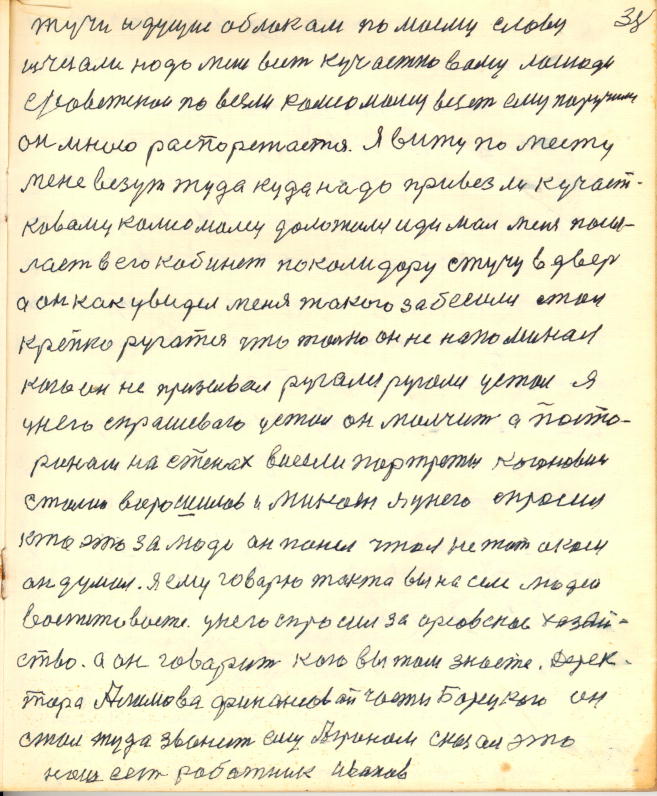 38
тучи идущие облакам по моему слову
ичезали нодо мени везт кучастковаму лошади
по везли комсомолу везет ему поручили
он много распорежается. Я вижу по месту
мене везут туда куданадо привезли кучаст-
ковому доложили иди мол меня посы-
лает в его кобинет поколидору стучу в двер
а он как увидел меня такого забесили стал
крепко ругатся что толко он не напоминал
кого он не призывал ругалсиругали устал я
унего спрашеваю устал он молчит а
на стенах висели портреты Когоновича
сталин ворошилов и Микоян я унего спросил
кто это за люди он понел что я не тот окого
он думал. я ему говарю так та вы на селе людей
воспитоваете. унего спросил за хазяй-
ство. а он говарит кого вы там знаете. Дерек-
тора Алимова финансовай части Борецкого он
стал туда звонит ему Агроном сказал это
наш ест работник Иванов